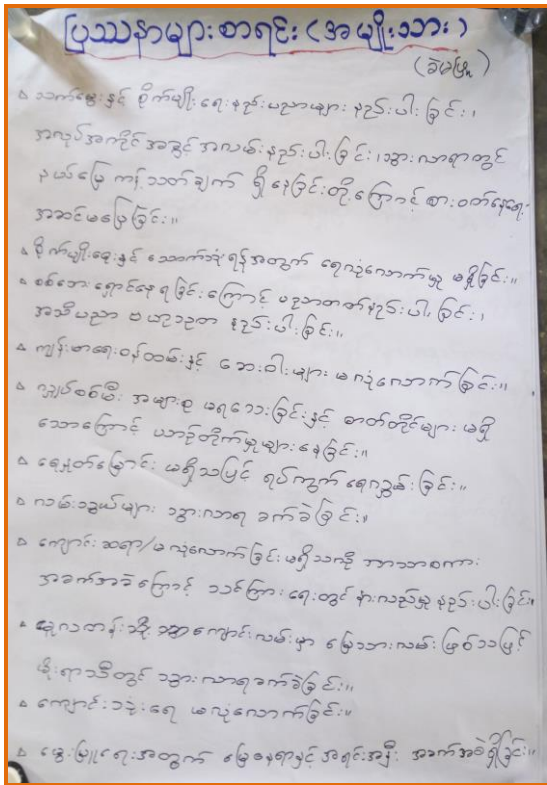 ပြဿနာများစာရင်း (အမျိုးသား)
(ခဲမဖြူ)
သက်မွေးနှင့် စိုက်ပျိုးရေးနည်းပညာများ နည်းပါးခြင်း၊
အလုပ်အကိုင်အခွင့်အလမ်းနည်းပါးခြင်း၊ သွားလာရာတွင်
နယ်မြေကန့်သတ်ချက် ရှိနေခြင်းတို့ကြောင့် စားဝတ်နေရေး
အဆင်မပြေခြင်း။
စိုက်ပျိုးရေးနှင့် သောက်သုံးရန်အတွက် ရေလုံလောက်မှု မရှိခြင်း။
စစ်ဘေးရှောင်နေရခြင်းကြောင့် ပညာတတ်နည်းပါးခြင်း၊
အသိပညာ ဗဟုသုတ နည်းပါးခြင်း။
ကျန်းမာရေးဝန်ထမ်းနှင့် ဆေးဝါးများ မလုံလောက်ခြင်း။
လျှပ်စစ်မီး အများစု မရသေးခြင်းနှင့် ဓာတ်တိုင်များ မရှိ
သောကြောင့် ယာဉ်တိုက်မှုများနေခြင်း။
ရေနုတ်မြောင်း မရှိသဖြင့် ရပ်ကွက် ရေလျှံခြင်း။
လမ်းသွယ်များ သွားလာရ ခက်ခဲခြင်း။
ကျောင်းဆရာ/မ လုံလောက်ခြင်းမရှိသကဲ့ ဘာသာစကား
အခက်အခဲကြောင့် သင်ကြားရေးတွင် နားလည်မှု နည်းပါးခြင်း။
မူလတန်းသို့ သွားကျောင်းလမ်းမှာ မြေသားလမ်း ဖြစ်သဖြင့်
မိုးရာသီတွင် သွားလာရခက်ခဲခြင်း။
ကျောင်းသုံးရေ မလုံလောက်ခြင်း။
မွေးမြူရေးအတွက် မြေနေရာနှင့် အရင်းအနှီး အခက်အခဲရှိခြင်း။